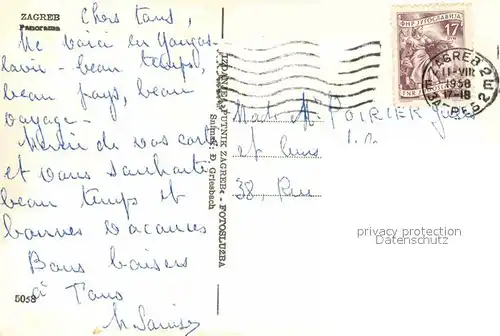 ZAGREB
Panorama
Chers tous,
Me voici en Yougos-
lavie - beau temps,
beau pays, beau
voyage -
Merci de vos cartes
et vous souhaite
beau temps et
bonnes vacances
Bons baisers
à Tous
5058
IZDANJE »PUTNIK ZAGREB« - FOTOSLUŽBA
Snimak: Đ. Griesbach
FNR JUGOSLAVIJA
17
DIN
ZAGREB 2
11-VIII
1958
17-18
ZAGREB 2
POIRIER
et leurs
38, Rue
privacy protection
Datenschutz